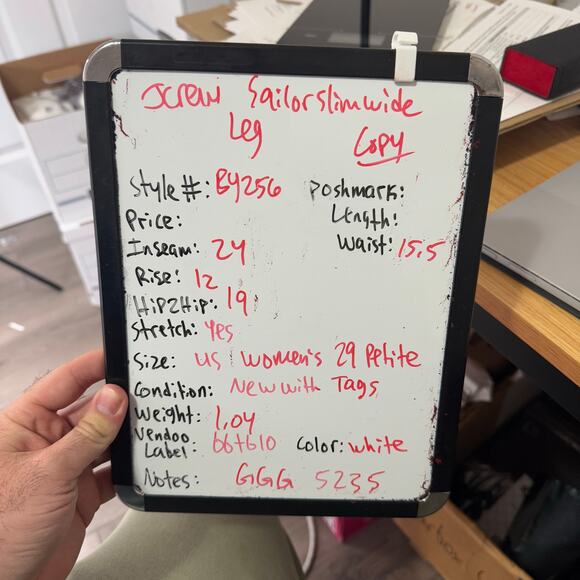 Jcrew Sailor slim wide
Leg
Copy
Style #: BY256
Poshmark:
Price:
Length:
Inseam: 24
Waist: 15.5
Rise: 12
Hip2Hip: 19
Stretch: Yes
Size: US Women's 29 Petite
Condition: New with Tags
Weight: 1.04
Vendoo
Label: bb+b10 Color: white
Notes: GGG 5235